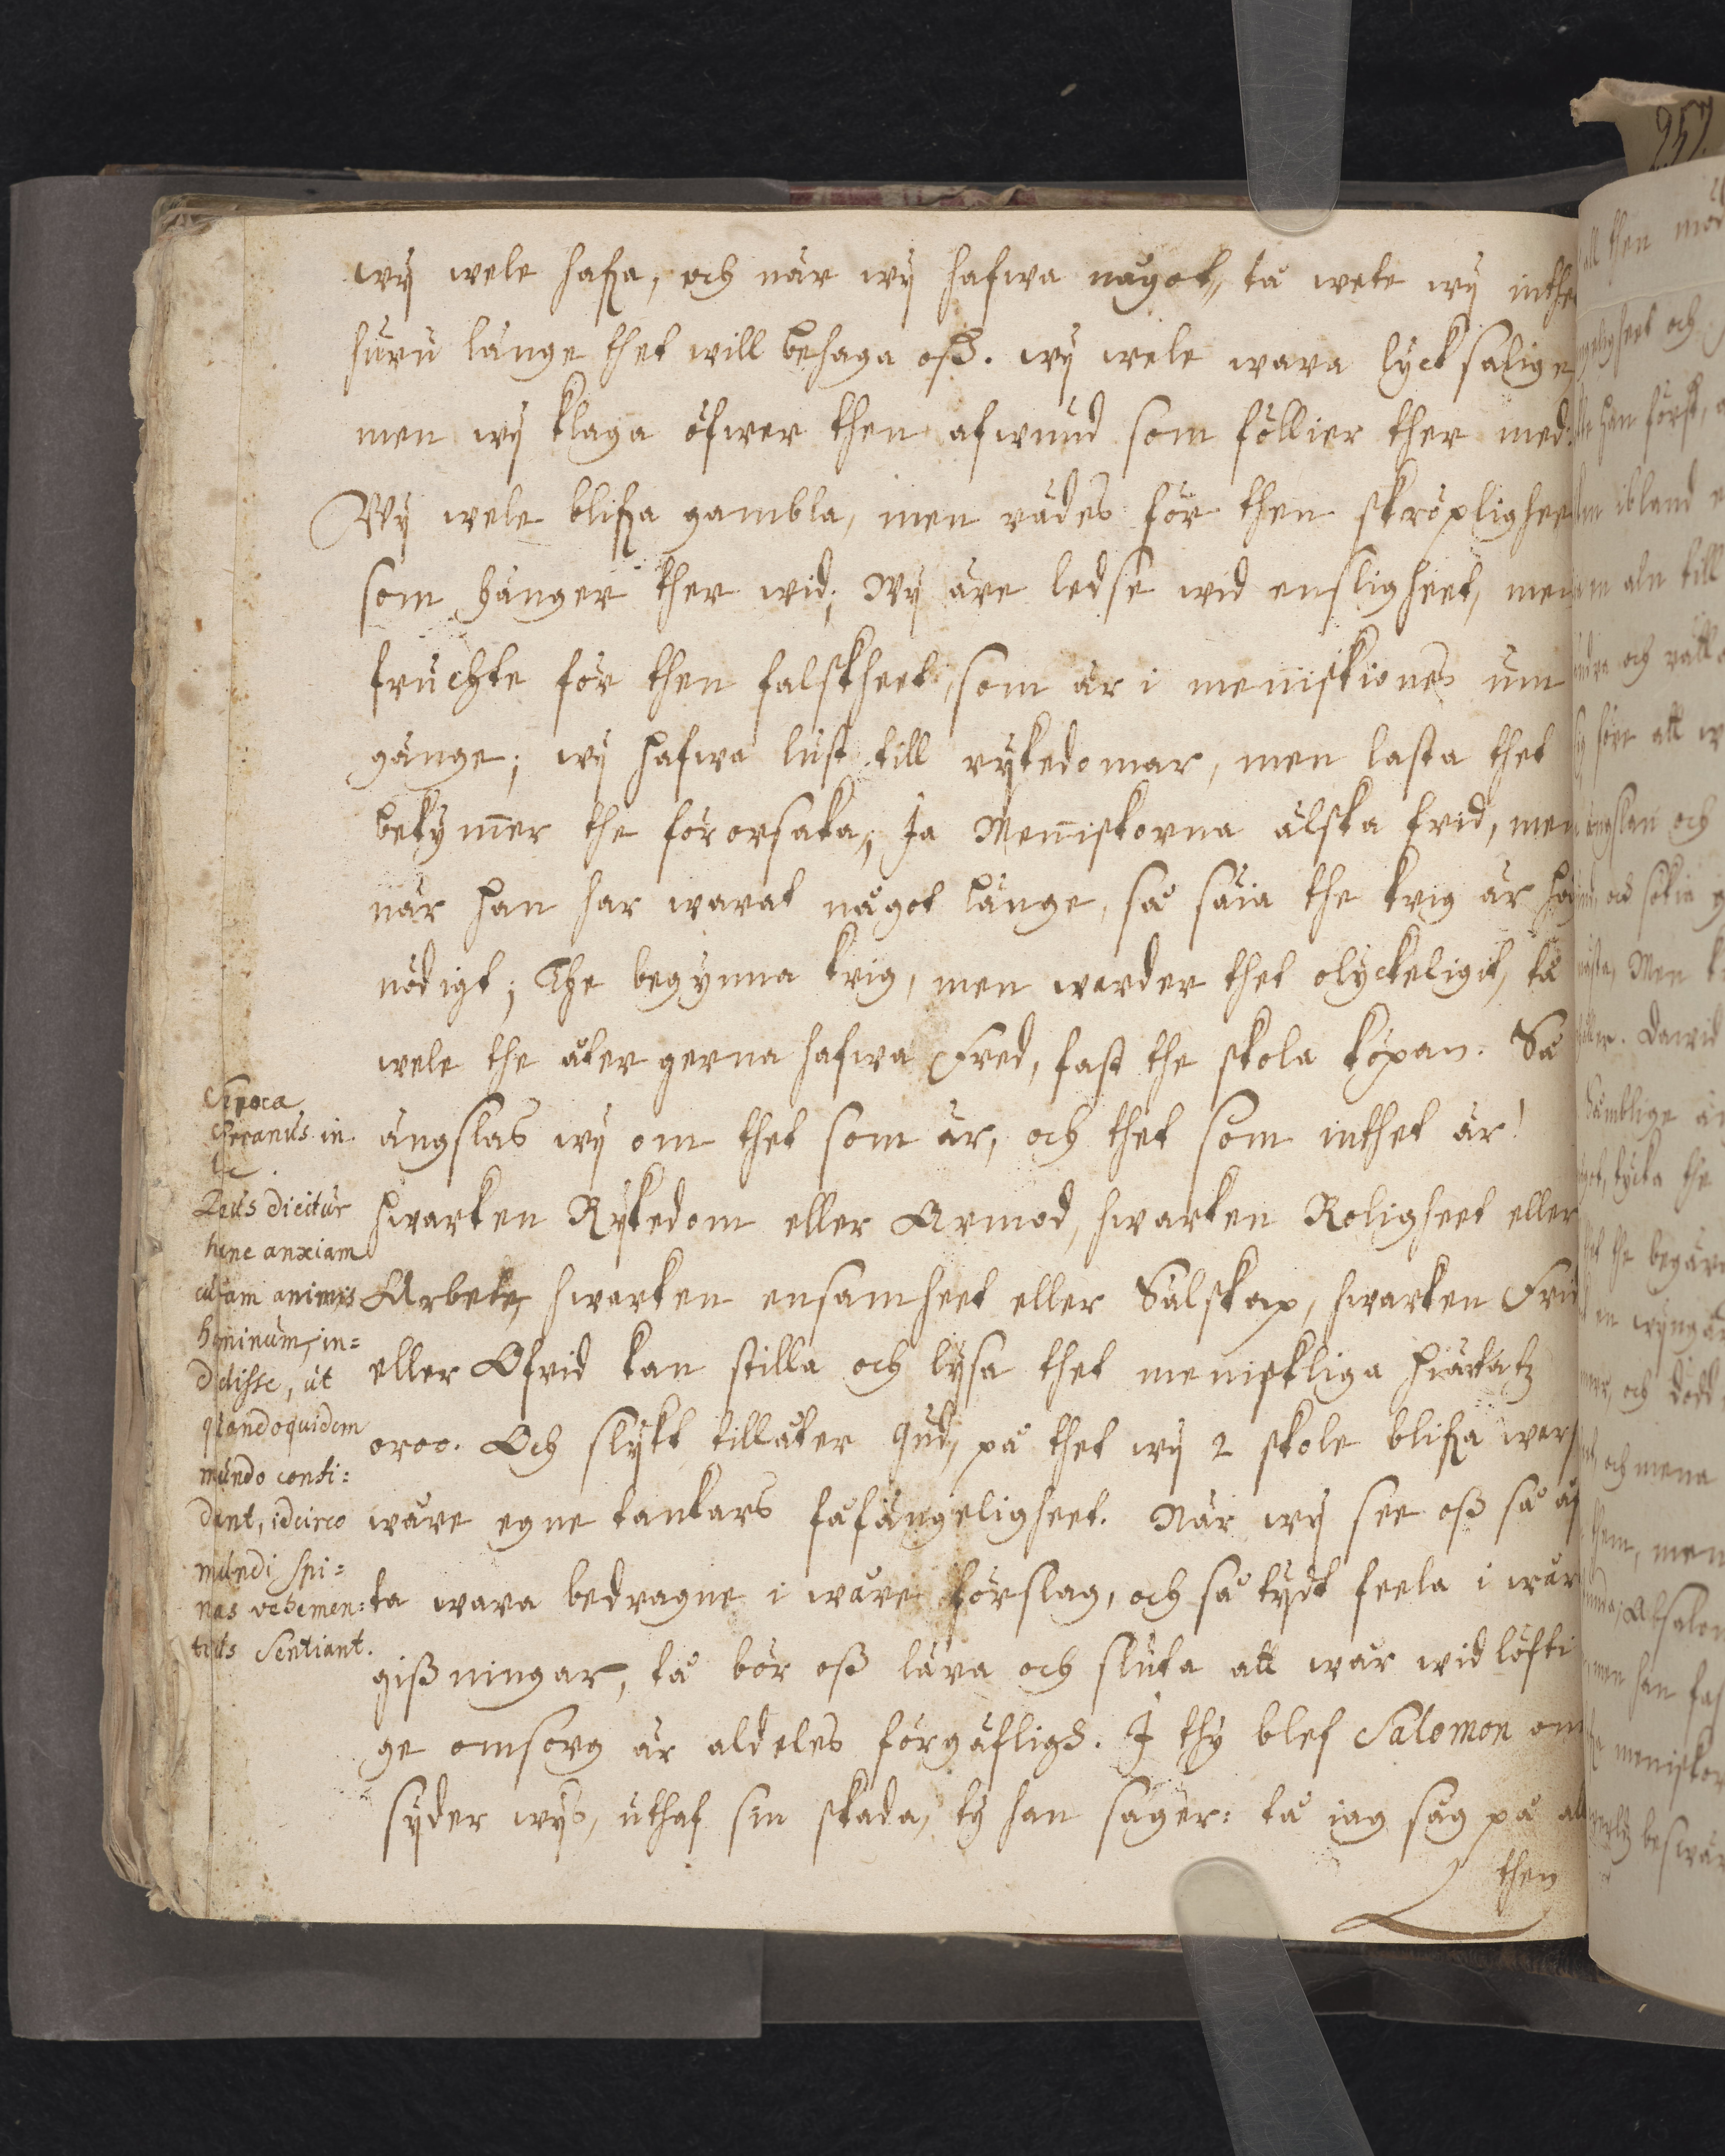 wÿ wele hafa, och när wÿ hafwa något, tå wete wÿ inthe
huru länge thet will behaga oß. wÿ wele wara lÿcksalige
men wÿ klaga öfwer then afwund som föllier ther med.
Wÿ wele blifa gambla, men rädes för then skröpligheet
som hänger ther wid; Wÿ äre ledse wid ensligheet, men
fruchte för then falskheet, som är i menniskiones um
gänge; wÿ hafwa lust till rÿkedomar, men lasta thet
bekÿmer the förorsaka; Ja Meniskorna älska frid, men
när han har warat något länge, så säia the krig är
nödigt; The begÿnna krig, men warder thet olÿckeligit, tå
wele the åter gerna hafwa Fred, fast the skola köpan. Så
ängslas wÿ om thet som är, och thet som inthet är!
hwarken Rÿkedom eller Armod, hwarken Roligheet eller
Arbete, hwarken ensamheet eller Sälskap, hwarken Frid
eller Ofrid kan stilla och lÿsa thet menniskliga hiärtatz
oroo. Och slÿkt tillåter Gud, på thet wÿ 2 skole blifa
wåre egne tankars fåfängeligheet. När wÿ see oß så
ta wara bedragne i wåre förslag, och så tÿdt feela i wår
gißningar, tå bör oß lära och sluta att wår widlöfti
ge omsorg är aldeles förgäfligh. I thÿ blef Salomon om
sÿder wÿs, uthaf sin skada, tÿ han säger: tå iag såg på all
then
in
Deus dicitur
hanc anxiam
curam animis
hominum, in=
didisse, ut
quandoquidem
mundo confi=
dunt, idcirco
mundi spi=
nas vehemen=
tius Sentiant.
257
then
och
han först,
ibland
aln till
och
före att
och
och sökia
Men
Dawid
tÿcka the
the begära
och dödt
och mena
them, men
Absalon
men han
meniskor